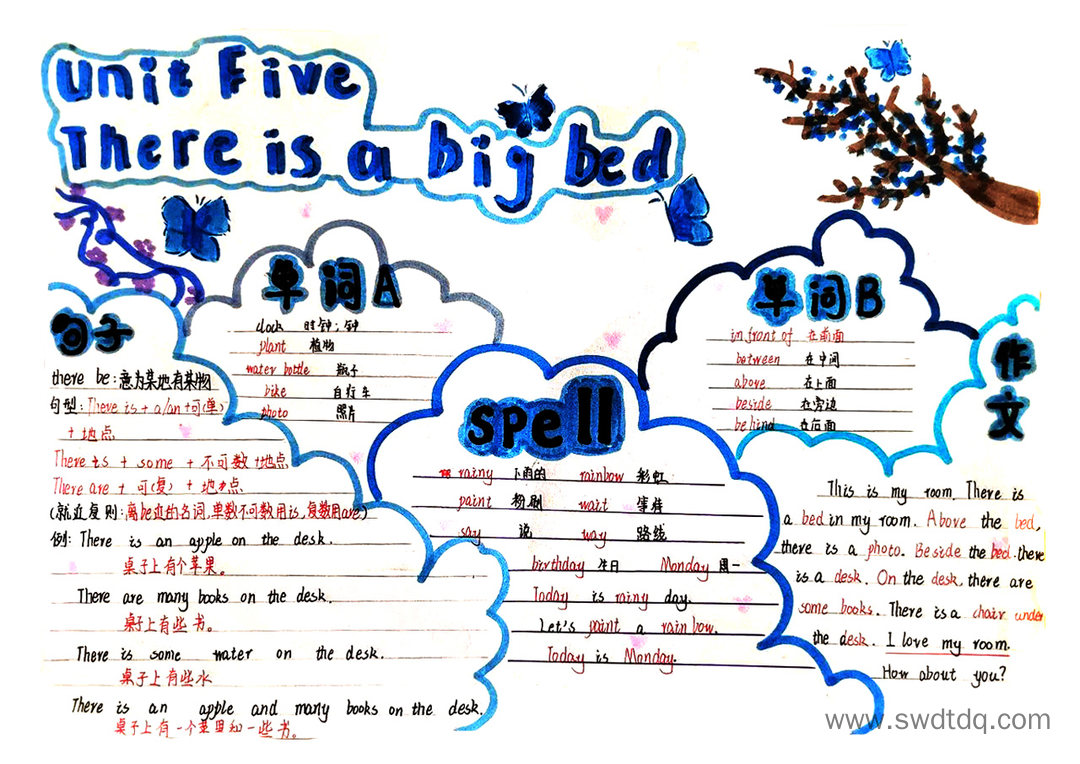 Unit Five
There is a big bed
单词A
clock 时钟;钟
plant 植物
water bottle 瓶子
bike 自行车
photo 照片
单词B
in front of 在前面
between 在中间
above 在上面
beside 在旁边
behind 在后面
句子
there be:意为某地有某物
句型:There is + a/an +可(单)
+ 地点
There is + some + 不可数 +地点
There are + 可(复) + 地点
(就近复则:离be近的名词,单数不可数用is,复数用are)
例: There is an apple on the desk.
桌子上有个苹果。
There are many books on the desk.
桌子上有些书。
There is some water on the desk.
桌子上有些水
There is an apple and many books on the desk.
桌子上有一个苹果和一些书。
spell
rainy 下雨的 rainbow 彩虹
paint 粉刷 wait 等待
say 说 way 路线
birthday 生日 Monday 周一
Today is rainy day.
Let's paint a rainbow.
Today is Monday.
作文
This is my room. There is
a bed in my room. Above the bed,
there is a photo. Beside the bed. there
is a desk. On the desk, there are
some books. There is a chair under
the desk. I love my room.
How about you?
www.swdtdq.com